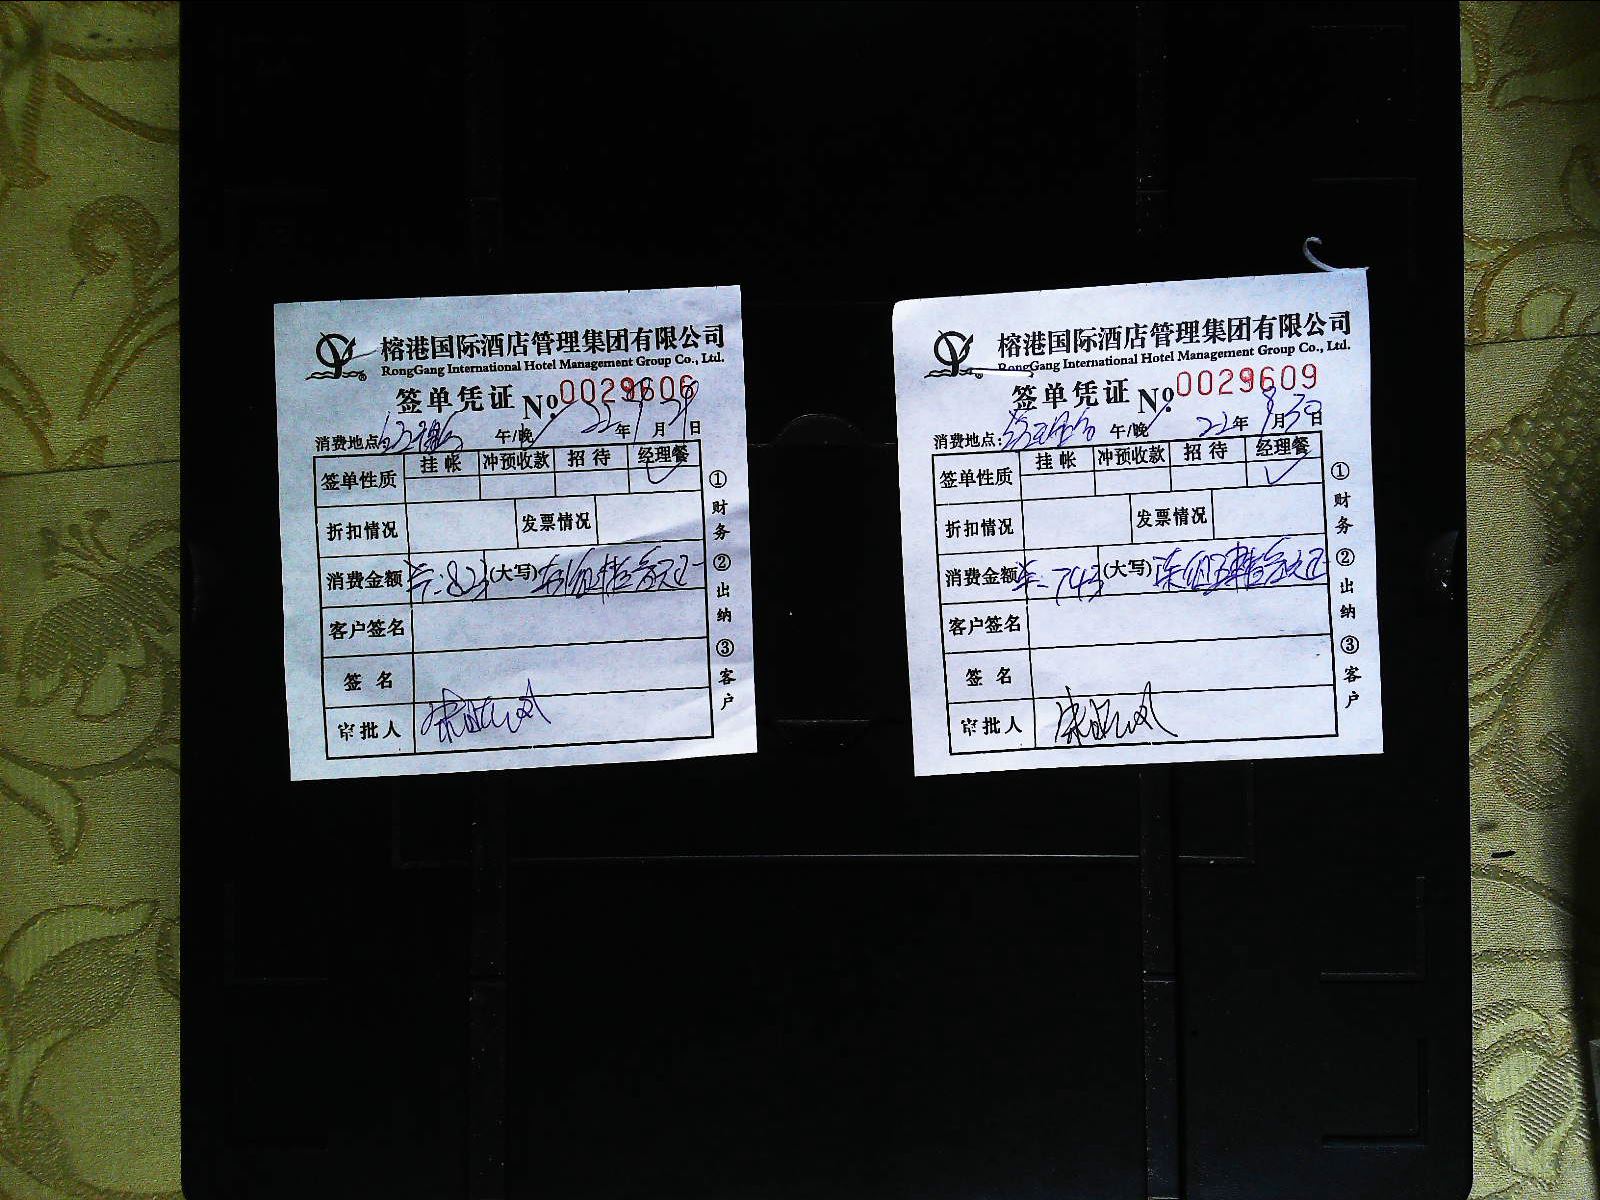 榕港国际酒店管理集团有限公司
RongGang International Hotel Management Group Co., Ltd.
签单凭证 No. 0029606
消费地点: 午/晚 22年 月29日
签单性质 挂帐 冲预收款 招待 经理餐
折扣情况 发票情况
消费金额 (大写)
客户签名
签名
审批人
①财务 ②出纳 ③客户
榕港国际酒店管理集团有限公司
RongGang International Hotel Management Group Co., Ltd.
签单凭证 No. 0029609
消费地点: 午/晚 22年 月30日
签单性质 挂帐 冲预收款 招待 经理餐
折扣情况 发票情况
消费金额 743 (大写)
客户签名
签名
审批人
①财务 ②出纳 ③客户